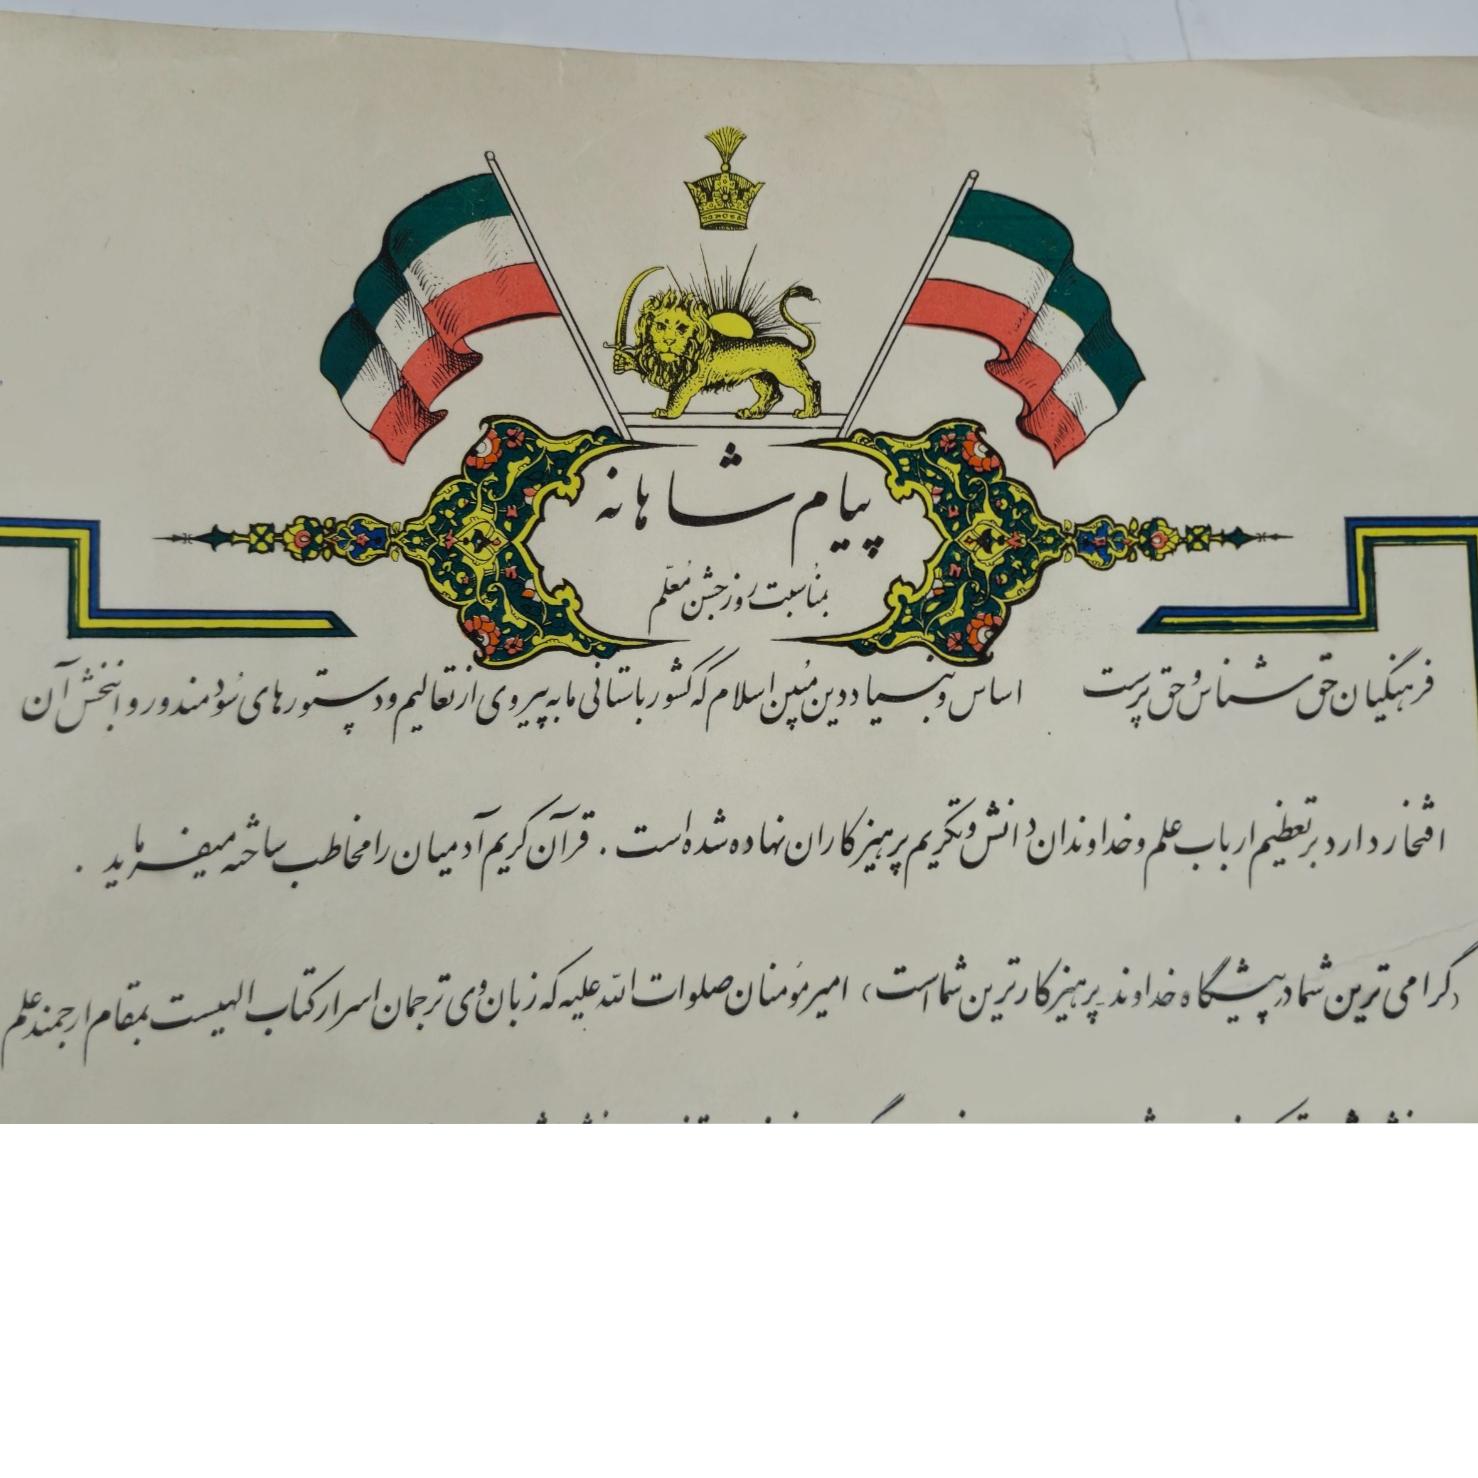 پیام شاهانه
بمناسبت روز جشن معلّم
فرهنگیان حق شناس و حق پرست اساس و بنیاد دین مُبین اسلام که کشور باستانی ما به پیروی از تعالیم و دستورهای سُودمند و روانبخش آن
افتخار دارد بر تعظیم ارباب علم و خداوندان دانش و تکریم پرهیزکاران نهاده شده است . قرآن کریم آدمیان را مخاطب ساخته میفرماید .
(گرامی ترین شما در پیشگاه خداوند پرهیزکارترین شما است) امیر مؤمنان صلوات الله علیه که زبان وی ترجمان اسرار کتاب الهیست بمقام ارجمند علم